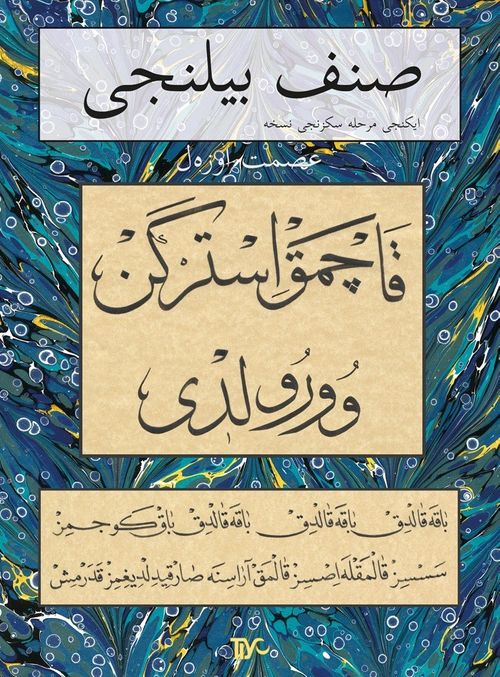 صنف بیلنجی
ایكنجی مرحله سكزنجی نسخه
عصمت اوزه‌ل
قاچمق اِستركن
وُورُولْدی
باقه قالدق باقه قالدق باقه قالدق باق كوجمز
سسسز قالمقله اصسز قالمق آراسنه صارقیدلدیغمز قدرمش